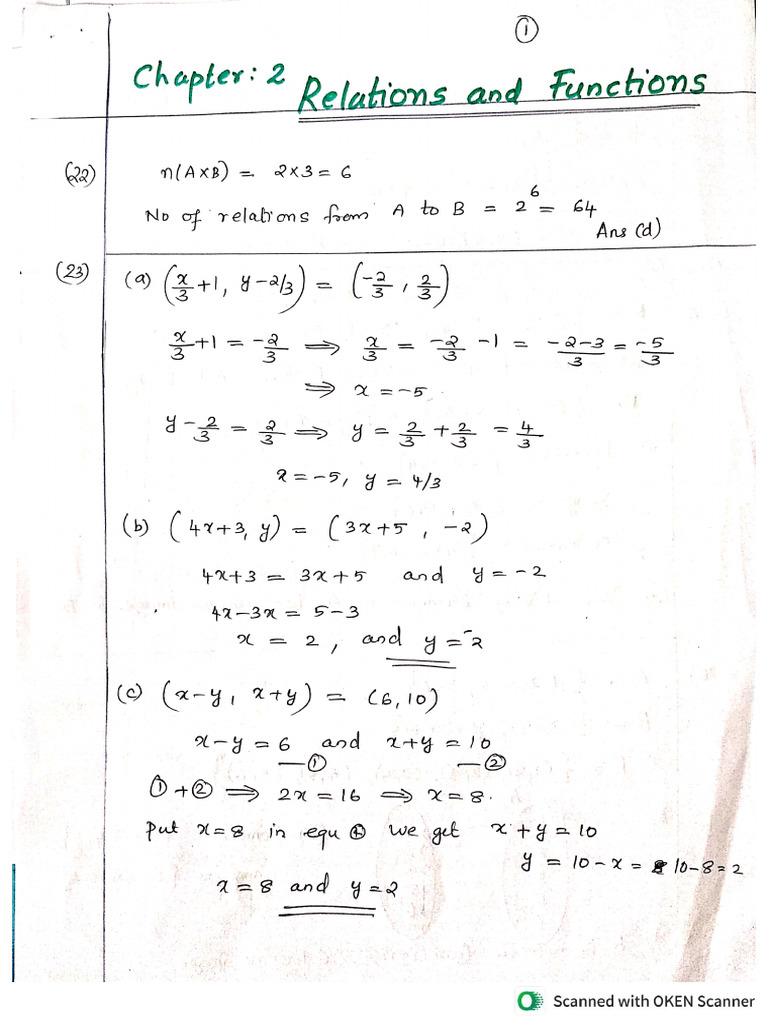 ①
Chapter: 2 Relations and Functions
(22) n(A×B) = 2×3 = 6
No of relations from A to B = 2⁶ = 64
Ans (d)
(23) (a) (x/3 + 1, y - 2/3) = (-2/3, 2/3)
x/3 + 1 = -2/3 ⟹ x/3 = -2/3 - 1 = -2-3/3 = -5/3
⟹ x = -5
y - 2/3 = 2/3 ⟹ y = 2/3 + 2/3 = 4/3
x = -5, y = 4/3
(b) (4x+3, y) = (3x+5, -2)
4x+3 = 3x+5 and y = -2
4x-3x = 5-3
x = 2, and y = -2
(c) (x-y, x+y) = (6,10)
x-y = 6 and x+y = 10
—① —②
①+② ⟹ 2x = 16 ⟹ x = 8.
Put x=8 in equ ② we get x+y = 10
y = 10-x = 10-8 = 2
x = 8 and y = 2
Scanned with OKEN Scanner